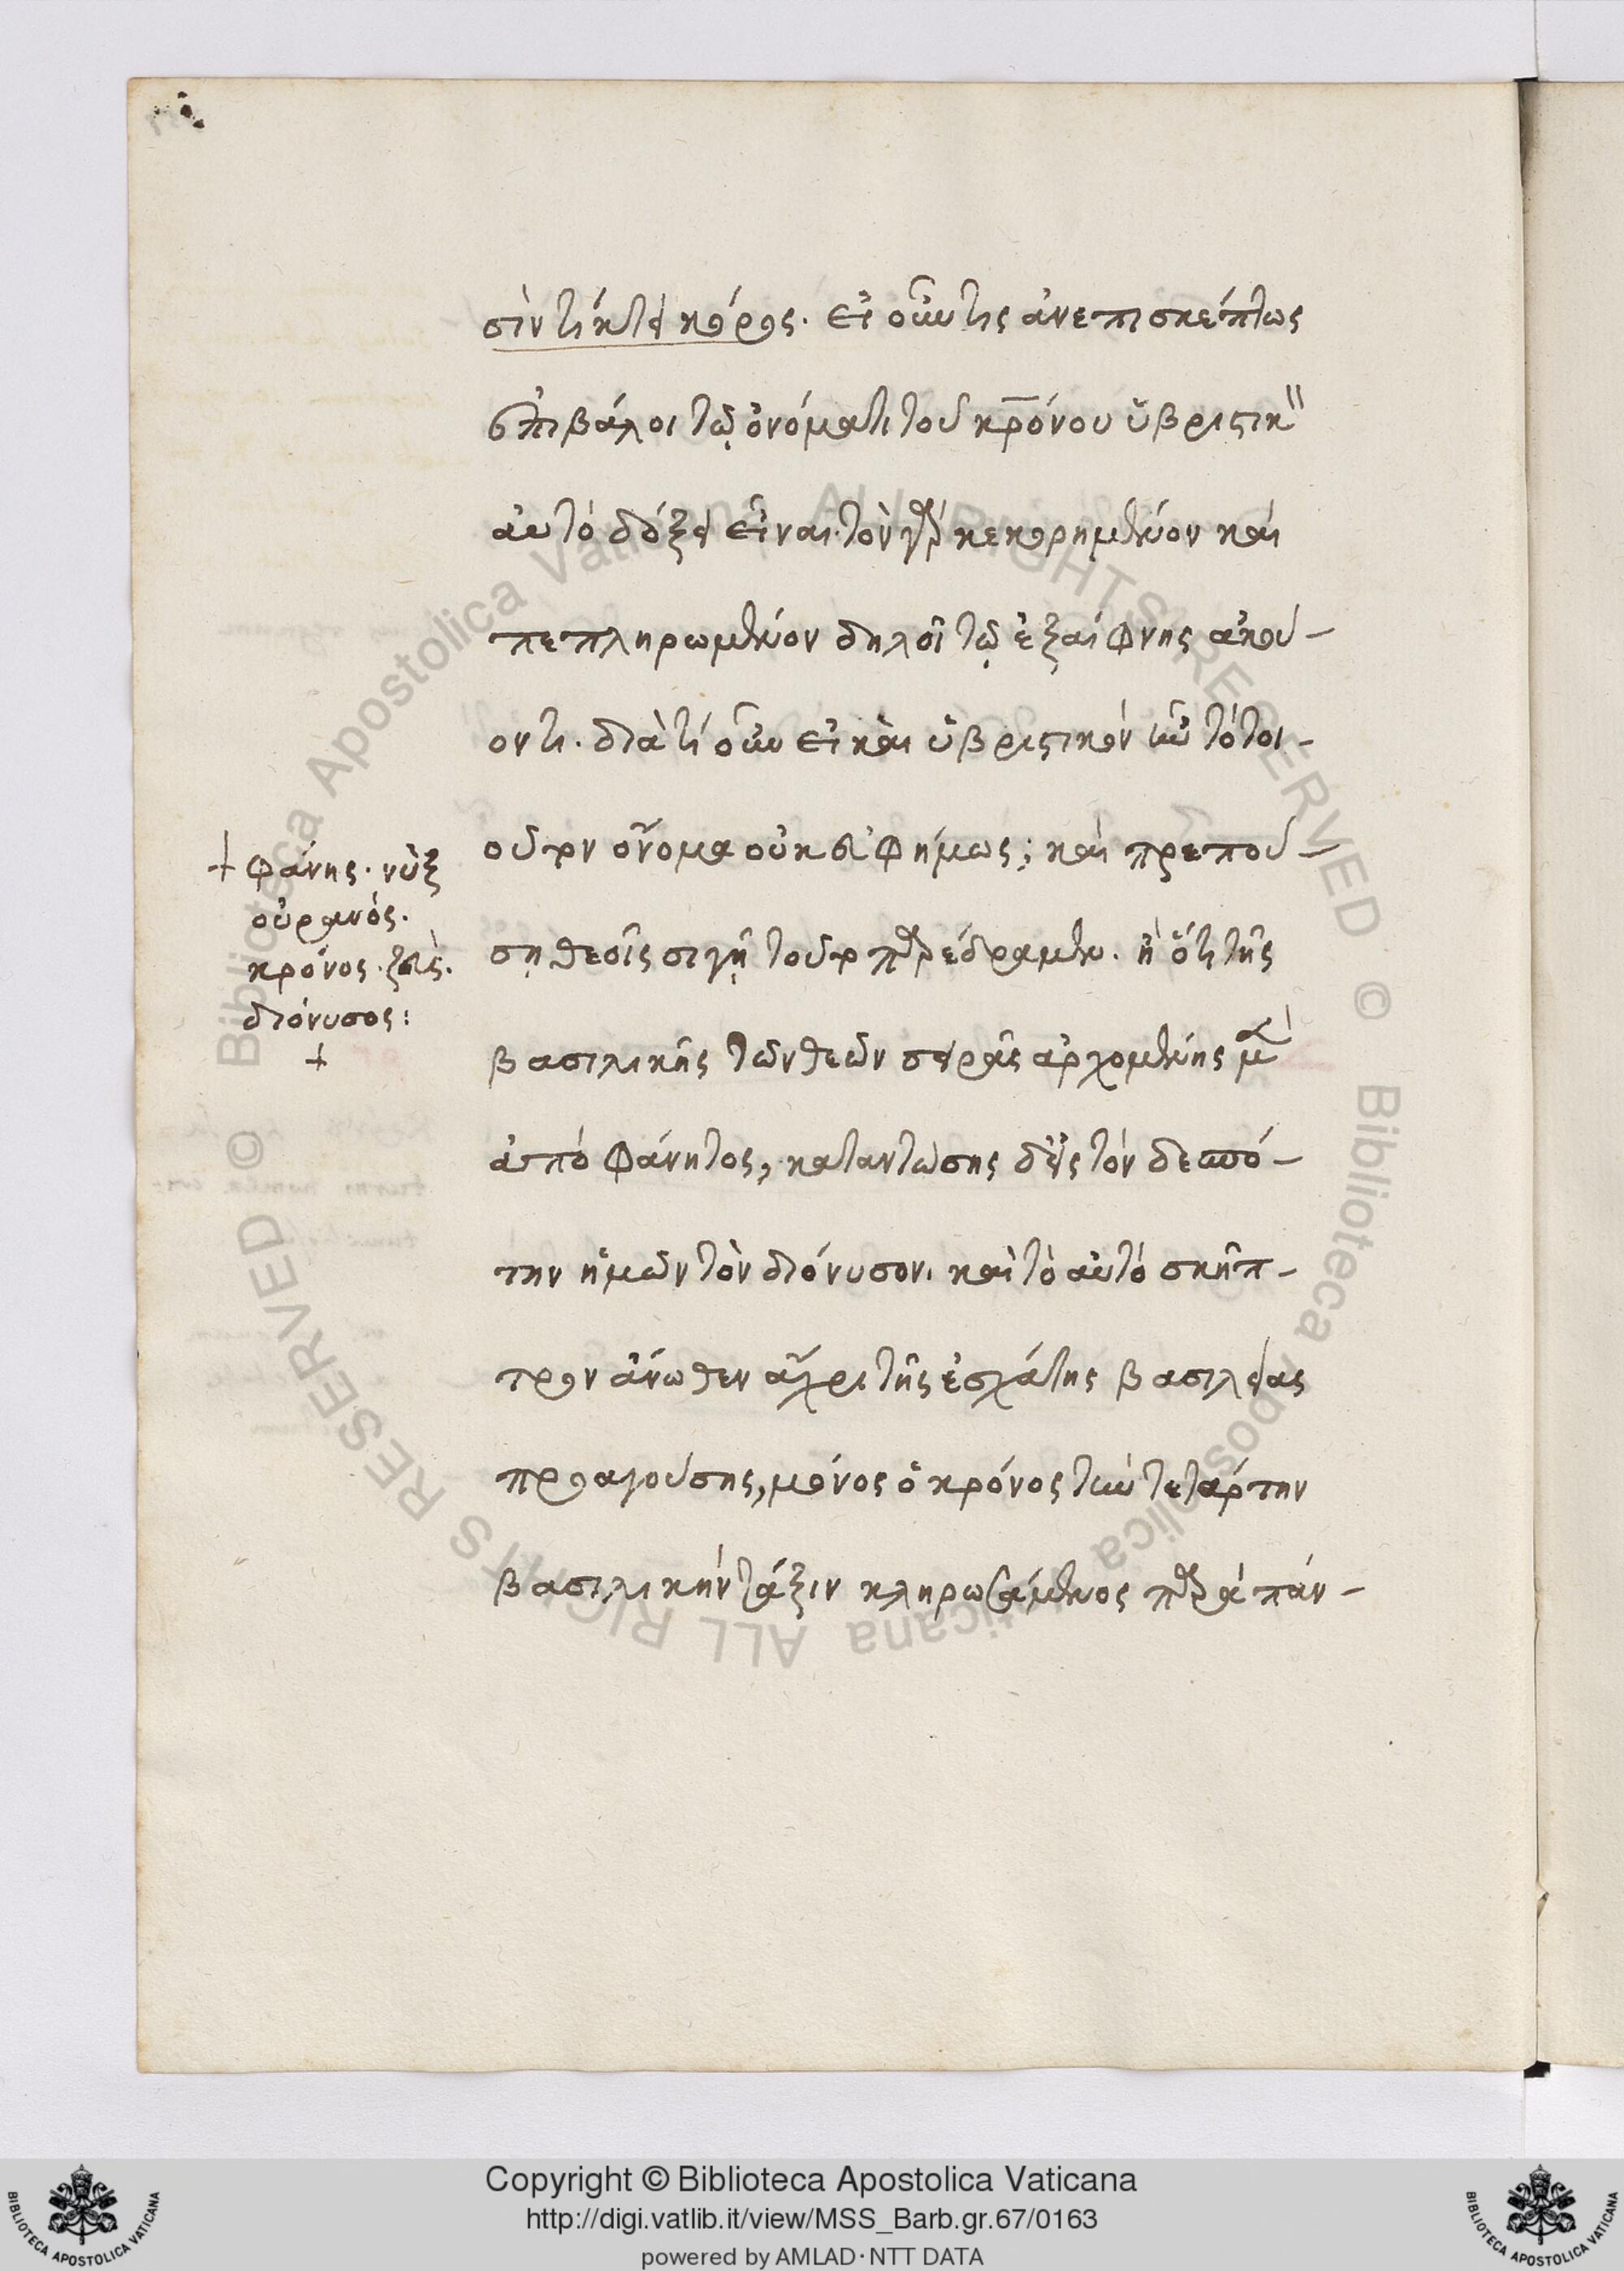 σὶν τίκτει κόρος. εἰ οὖν τις ἀνεπισκέπτως
ἐπιβάλοι τῷ ὀνόματι τοῦ κρόνου ὑβριστικ
αὐτὸ δόξει εἶναι. τὸν γὰρ κεκορημένον καὶ
πεπληρωμένον δηλοῖ τῷ ἐξαίφνης ἀκού-
οντι. διὰ τί οὖν εἰ καὶ ὑβριστικὸν ἦν τὸ τοι-
οῦτον ὄνομα οὐκ εὐφήμως; καὶ πρεπού-
σῃ θεοῖς σιγῇ τοῦτο παρεδράμεν. ἢ ὅτι τῆς
βασιλικῆς τῶν θεῶν σειρᾶς ἀρχομένης μὲν
ἀπὸ Φάνητος, καταντώσης δὲ εἰς τὸν δεσπό-
την ἡμῶν τὸν διόνυσον. καὶ τὸ αὐτὸ σκῆπ-
τρον ἄνωθεν ἄχρι τῆς ἐσχάτης βασιλείας
προαγούσης, μόνος ὁ κρόνος τὴν τετάρτην
βασιλικὴν τάξιν κληρωσάμενος παρὰ πάν-
+ φάνης. νὺξ
οὐρανός.
κρόνος. ζεὺς.
διόνυσος:
+
Copyright © Biblioteca Apostolica Vaticana
http://digi.vatlib.it/view/MSS_Barb.gr.67/0163
powered by AMLAD·NTT DATA
BIBLIOTECA APOSTOLICA VATICANA
BIBLIOTECA APOSTOLICA VATICANA
Biblioteca Apostolica Vaticana ALL RIGHTS RESERVED © Biblioteca Apostolica Vaticana ALL RIGHTS RESERVED ©